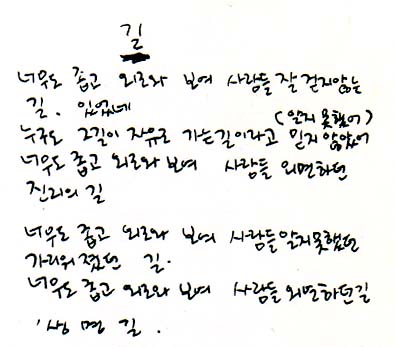 길
너무도 좁고 외로와 보여 사람들 잘 걷지않는
길. 있었네
(알지 못했어)
누구도 그길이 자유로 가는길이라고 믿지 않았어
너무도 좁고 외로와 보여 사람들 외면하던
진리의 길
너무도 좁고 외로와 보여 사람들 알지못했던
가리워졌던 길.
너무도 좁고 외로와 보여 사람들 외면하던길
생명길.